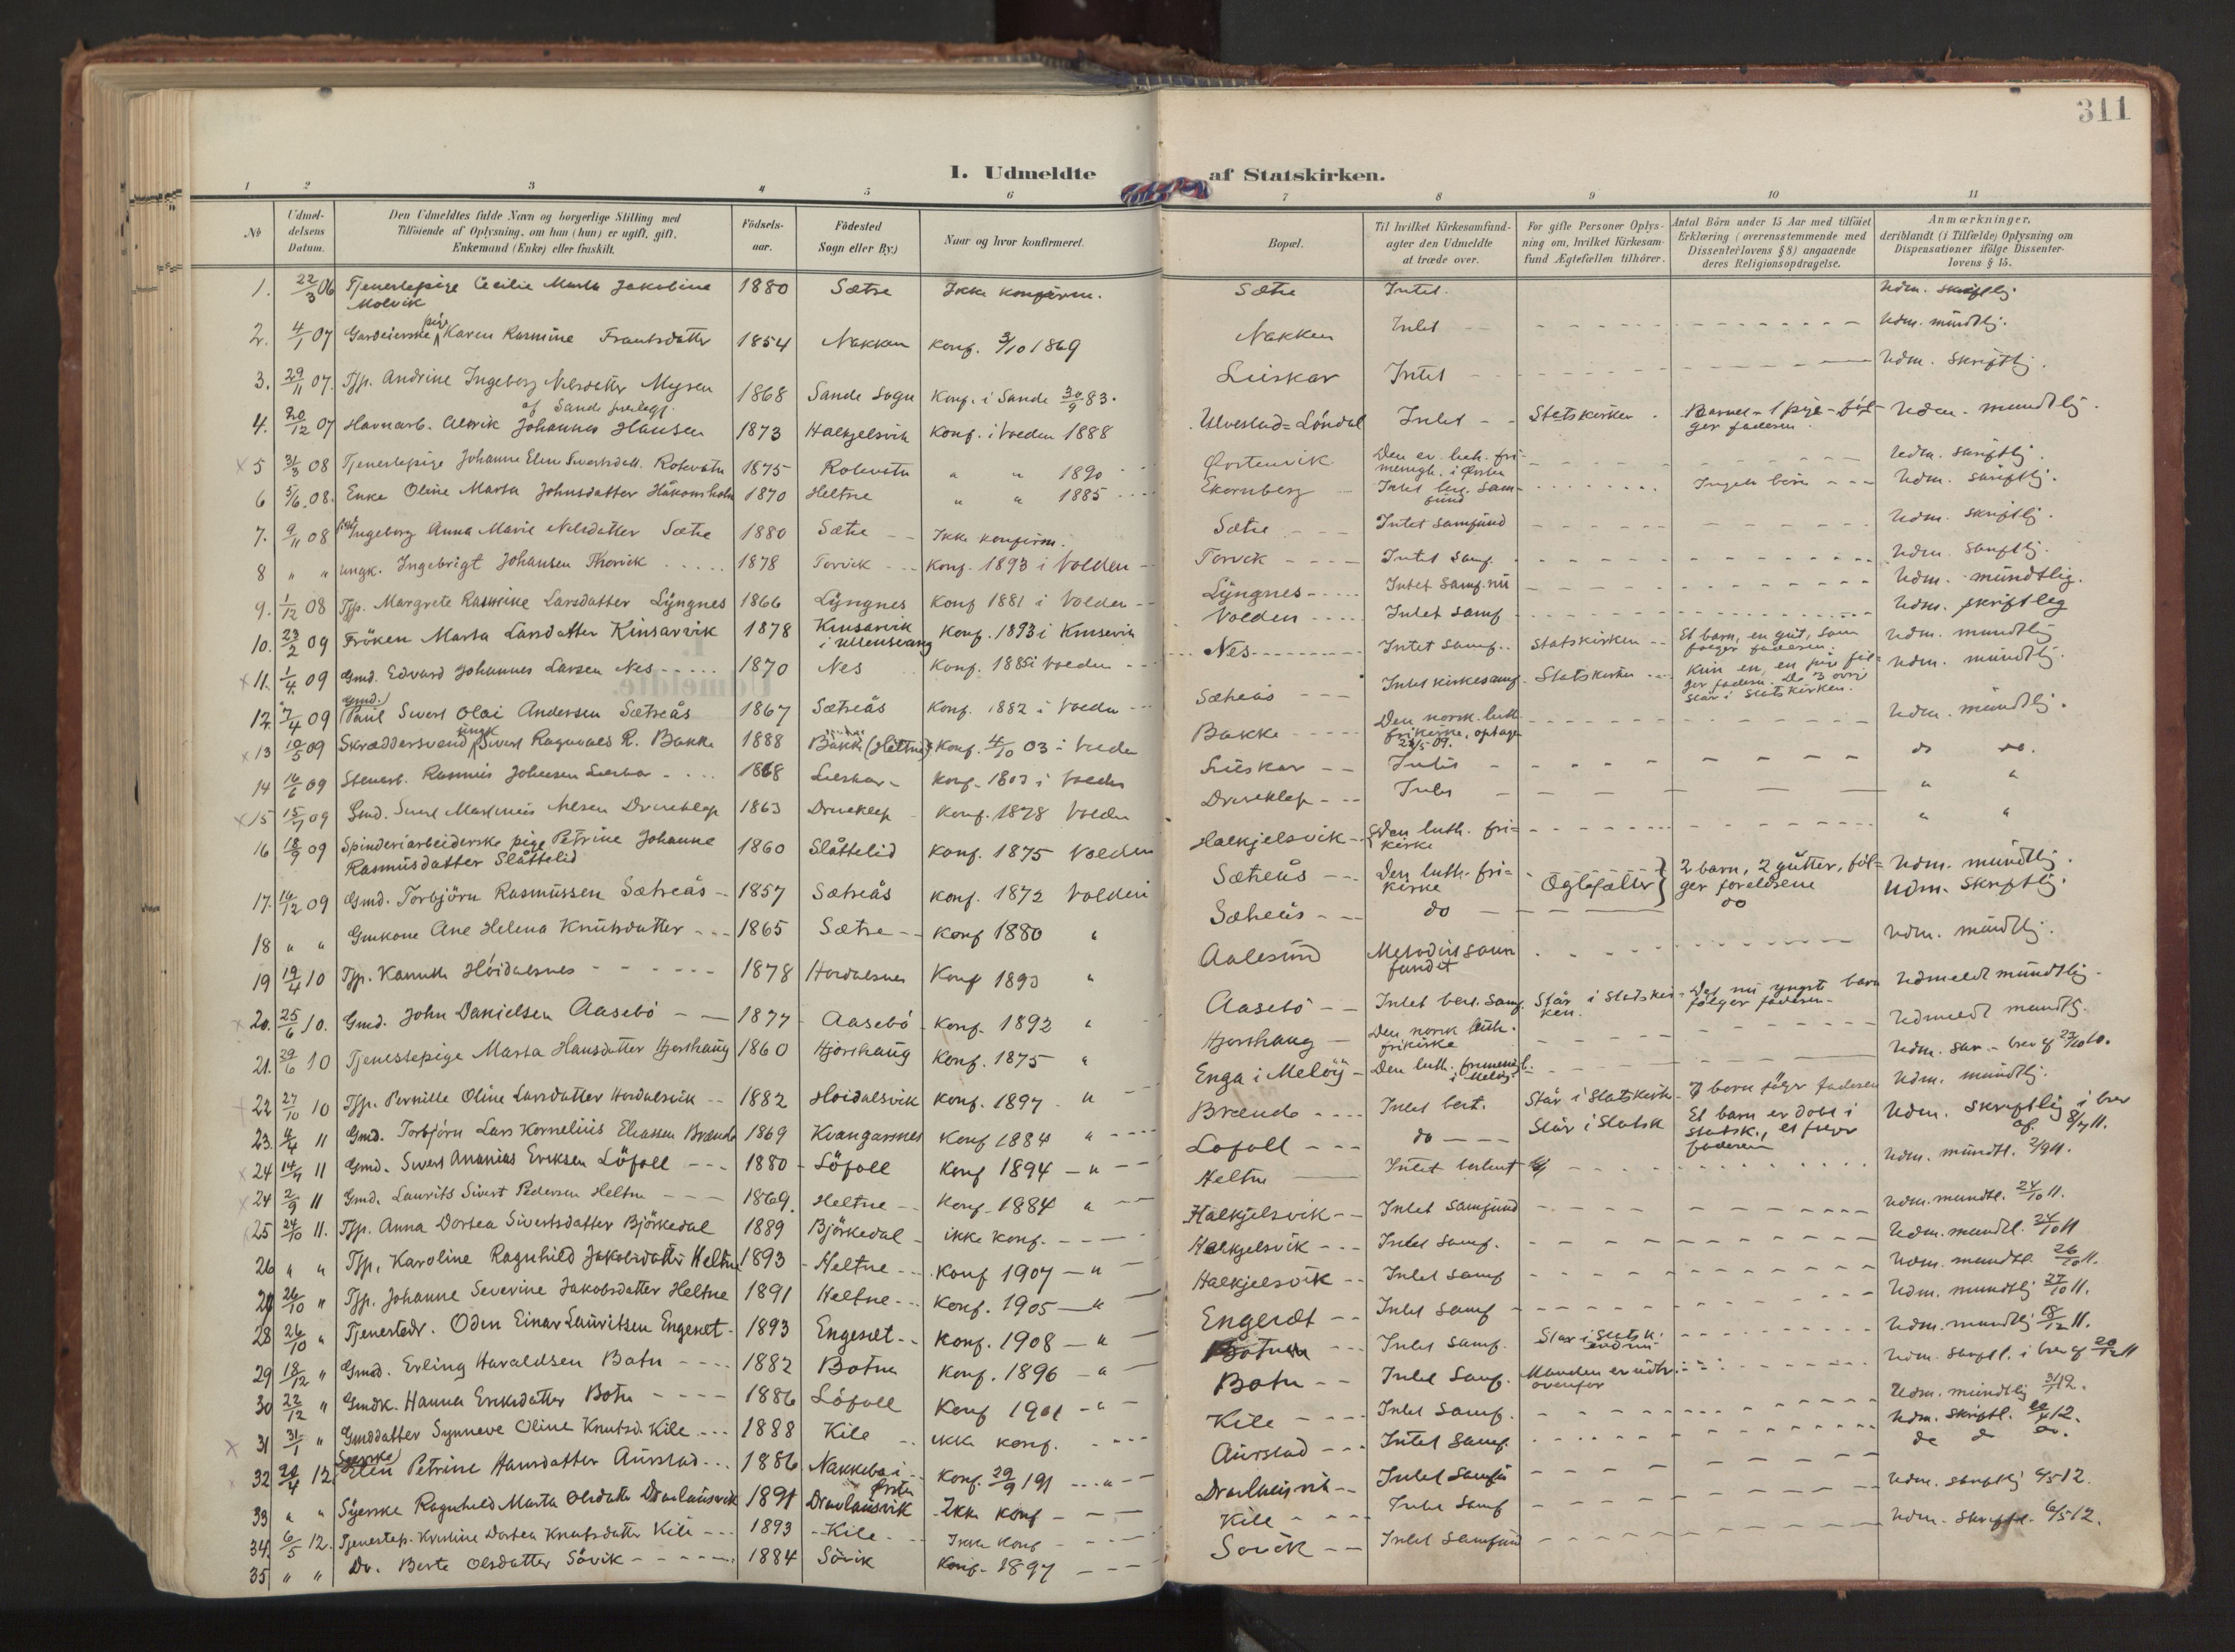 311
I. Udmeldte af Statskirken.
1 2 3 4 5 6 7 8 9 10 11
№ Udmeldelsens Datum. Den Udmeldtes fulde Navn og borgerlige Stilling med Tilföiende af Oplysning, om han (hun) er ugift, gift, Enkemand (Enke) eller fraskilt. Födselsaar. Födested Sogn eller By.) Naar og hvor konfirmeret. Bopæl. Til hvilket Kirkesamfund agter den Udmeldte at træde over. For gifte Personer Oplysning om, hvilket Kirkesamfund Ægtefællen tilhörer. Antal Börn under 15 Aar med tilföiet Erklæring (overensstemmende med Dissenterlovens §8) angaaende deres Religionsopdragelse. Anmærkninger, deriblandt (i Tilfælde) Oplysning om Dispensationer ifölge Dissenterlovens § 15.
1. 22/3 06 Tjenestepige Cecilie Marta Jakobine Molvik 1880 Sætre Ikke konfirm. Sætre Intet. Udm. skriftlig
2. 4/1 07 Gardeierske pige Karen Rasmine Frantsdatter 1854 Nakken Konf. 3/10 1869 Nakken Intet Udm. mündtlig.
3. 29/11 07. Tjp. Andrine Ingeborg Nilsdatter Myren af Sande 1868 Sande Sogn Konf. i Sande 30/9 83. Luiskar Intet Udm. skriftlig.
4. 20/12 07 Havnarb. Johannes Hansen 1873 Halkjelsvik Konf. i Volden 1888 Ulvestad-Löndal Intet Statskirken Barnet - 1 pige - fölger faderen. Udm. mundtlig.
x 5 31/3 08 Tjenestepige Johanne Eline Sivertsdatt. Rotevatn 1875 Rotevatn " " 1890 Örstenvik Den ev. luth. frimenigh. i Örsten Udm. skriftlig.
6 5/6 08. Enke Oline Marta Johnsdatter Håkonsholm 1870 Heltne " " 1885 Ekornberg Intet Samfund Ingen börn Udm. skriftlig.
7. 9/11 08 pige Ingeborg Anna Marie Nilsdatter Sætre 1880 Sætre Ikke konfirm. Sætre Intet Samfund Udm. skriftlig.
8 " " ungk. Ingebrigt Johansen Thorvik 1878 Torvik Konf. 1893 i Volden Torvik Intet Samf. Udm. skriftlig.
9. 1/12 08 Tjp. Margrete Rasmine Larsdatter Lyngnes 1866 Lyngnes Konf 1881 i Volden Lyngnes Intet Samf. nü Udm. mündtlig.
10. 23/2 09 Fröken Marta Larsdatter Kinsarvik 1878 Kinsarvik i Ullensvang Konf. 1893 i Kinsarvik Volden Intet Samf Udm. skriftleg
x 11. 1/4 09 Gmd. Edvard Johannes Larsen Nes 1870 Nes Konf. 1885 i Volden Nes Intet Samf. Statskirken Et barn, en gut, som fölger faderen. Udm. mundtlig
12. 7/4 09 Gmd. Paul Sivert Olai Andersen Sætreås 1867 Sætreås Konf. 1882 i Volden Sætreås Intet kirkesamf. Statskirken Kun en, en pige fölger faderen. De 3 står i Statskirken. Udm. mündtlig.
x 13 10/5 09 Skræddersvend ungk Sivert Ragnvald R. Bakke 1888 Bakke (Heltne) Konf. 4/10 03 i Volden Bakke Den norsk. luth. frikirke, optagen 23/5 09. Udm. mündtlig.
14 16/6 09 Stenarb. Rasmus Johnsen Luskar 1868 Luskar Konf. 1883 i Volden Luiskar Intet do do.
x 15 15/7 09 Gmd. Sivert Martinus Nilsen Driveklep 1863 Driveklep Konf. 1878 Volden Driveklep Intet " "
16. 18/9 09 Spinderiarbeiderske pige Petrine Johanne Rasmusdatter Slåttelid 1860 Slåttelid Konf. 1875 Volden Halkjelsvik Den luth. frikirke " "
17. 16/12 09 Gmd. Torbjörn Rasmussen Sætreås 1857 Sætreås Konf. 1872 Volden Sætreås Den luth. frikirke Ögtefæller 2 barn, 2 gutter, fölger foreldrene Udm. mündtlig.
18 " " Gmkone Ane Helena Knutsdatter 1865 Sætre Konf 1880 " Sætreås do do Udm. skriftlig.
19 19/4 10 Tjp. Kanutta Höidalsnes 1878 Hovdalsnes Konf 1893 " Aalesund Metodistsamfundet Udm. mündtlig.
x 20. 25/6 10. Gmd. John Danielsen Aasebö 1877 Aasebö Konf. 1892 " Aasebö Intet best. Samf. Står i Statskirken. Det nu yngst barn fölger faderen Udmeldt mündtlig.
21. 29/6 10 Tjenestepige Marta Hansdatter Hjorthaug 1860 Hjorthaug Konf. 1875 " Hjorthaug Den norsk luth. frikirke Udmeldt mundtlig.
x 22 27/10 10 Tjp. Pernille Oline Larsdatter Hovdalsvik 1882 Hoidalsvik Konf. 1897 " Enga i Melöy Den luth. frimenigh. i Melöy Udm. skr. - brev af 27/10 10.
23. 4/4 11 Gmd. Torbjörn Lars Kornelius Eliassen Brænde 1869 Kvangarsnes Konf 1884 " Brænde Intet best. Står i Statskirk barn fölger faderen Udm. mündtlig.
x 24 14/7 11 Gmd. Sivert Ananias Eriksen Löfoll 1880 Löfoll Konf 1894 " Löfoll do Står i Statsk Et barn er dobt i Statsk., et fölger faderen Udm. skriftlig i brev af 8/7 11.
x 24 2/9 11 Gmd. Laurits Sivert Pedersen Heltne 1869. Heltne Konf. 1884 " Heltne Intet bestemt Udm. mündtl. 2/9 11.
25 24/10 11. Tjp. Anna Dortea Sivertsdatter Björkedal 1889 Björkedal ikke konf. Halkjelsvik Intet Samfund Udm. mundtl. 24/10 11.
26 " " Tjp. Karoline Ragnhild Jakobsdatter Heltne 1893 Heltne Konf 1907 " Halkjelsvik Intet Samf. Udm. mundtl. 24/10 11
27 26/10 " Tjp. Johanne Severine Jakobsdatter Heltne 1891 Heltne Konf. 1905 " Halkjelsvik Intet Samf Udm. mundtl. 26/10 11.
28 26/10 " Tjenestedr. Oden Einar Lauritsen Engeset 1893 Engeset Konf. 1908 " Engeset Intet Samf Udm. mundtlig 27/10 11.
29 18/12 " Gmd. Erling Haraldsen Botn 1882 Botnen Konf. 1896 " Botnen Intet Samf. Står i Statsk. endnu Udm. mundtlig 18/12 11.
30 22/12 " Gmdk. Hanna Eriksdatter Botn 1886 Löfoll Konf 1901 " Botn Intet Samf. Manden er udtr. ovenfor Udm. skriftl. i brev af 20/12 11
x 31 31/1 " Gmddatter Synneve Oline Knutsd. Kile 1888 Kile ikke konf. Kile Intet Samf. Udm. mündtlig 31/1 12.
32 20/4 12 Syerske Elen Petrine Hansdatter Aurstad 1886 Nakkebo i Örsten Konf. 29/9 191 " Aurstad Intet Samf. Udm. skriftl. 20/4 12.
33 " " Syerske Ragnhild Marta Olsdatter Dravlausvik 1891 Dravlausvik Ikke konf Dravlausvik Intet Samfu do do do.
34. 6/5 12. Tjenestep. Kristine Dortea Knutsdatter Kile 1893 Kile Ikke konf Kile Intet Samf Udm. skriftlig 6/5 12.
35 " " Do. Berte Olsdatter Sövik 1884 Sövik Konf. 1897 Sövik Intet Samfund Udm. skriftl. 6/5 12.